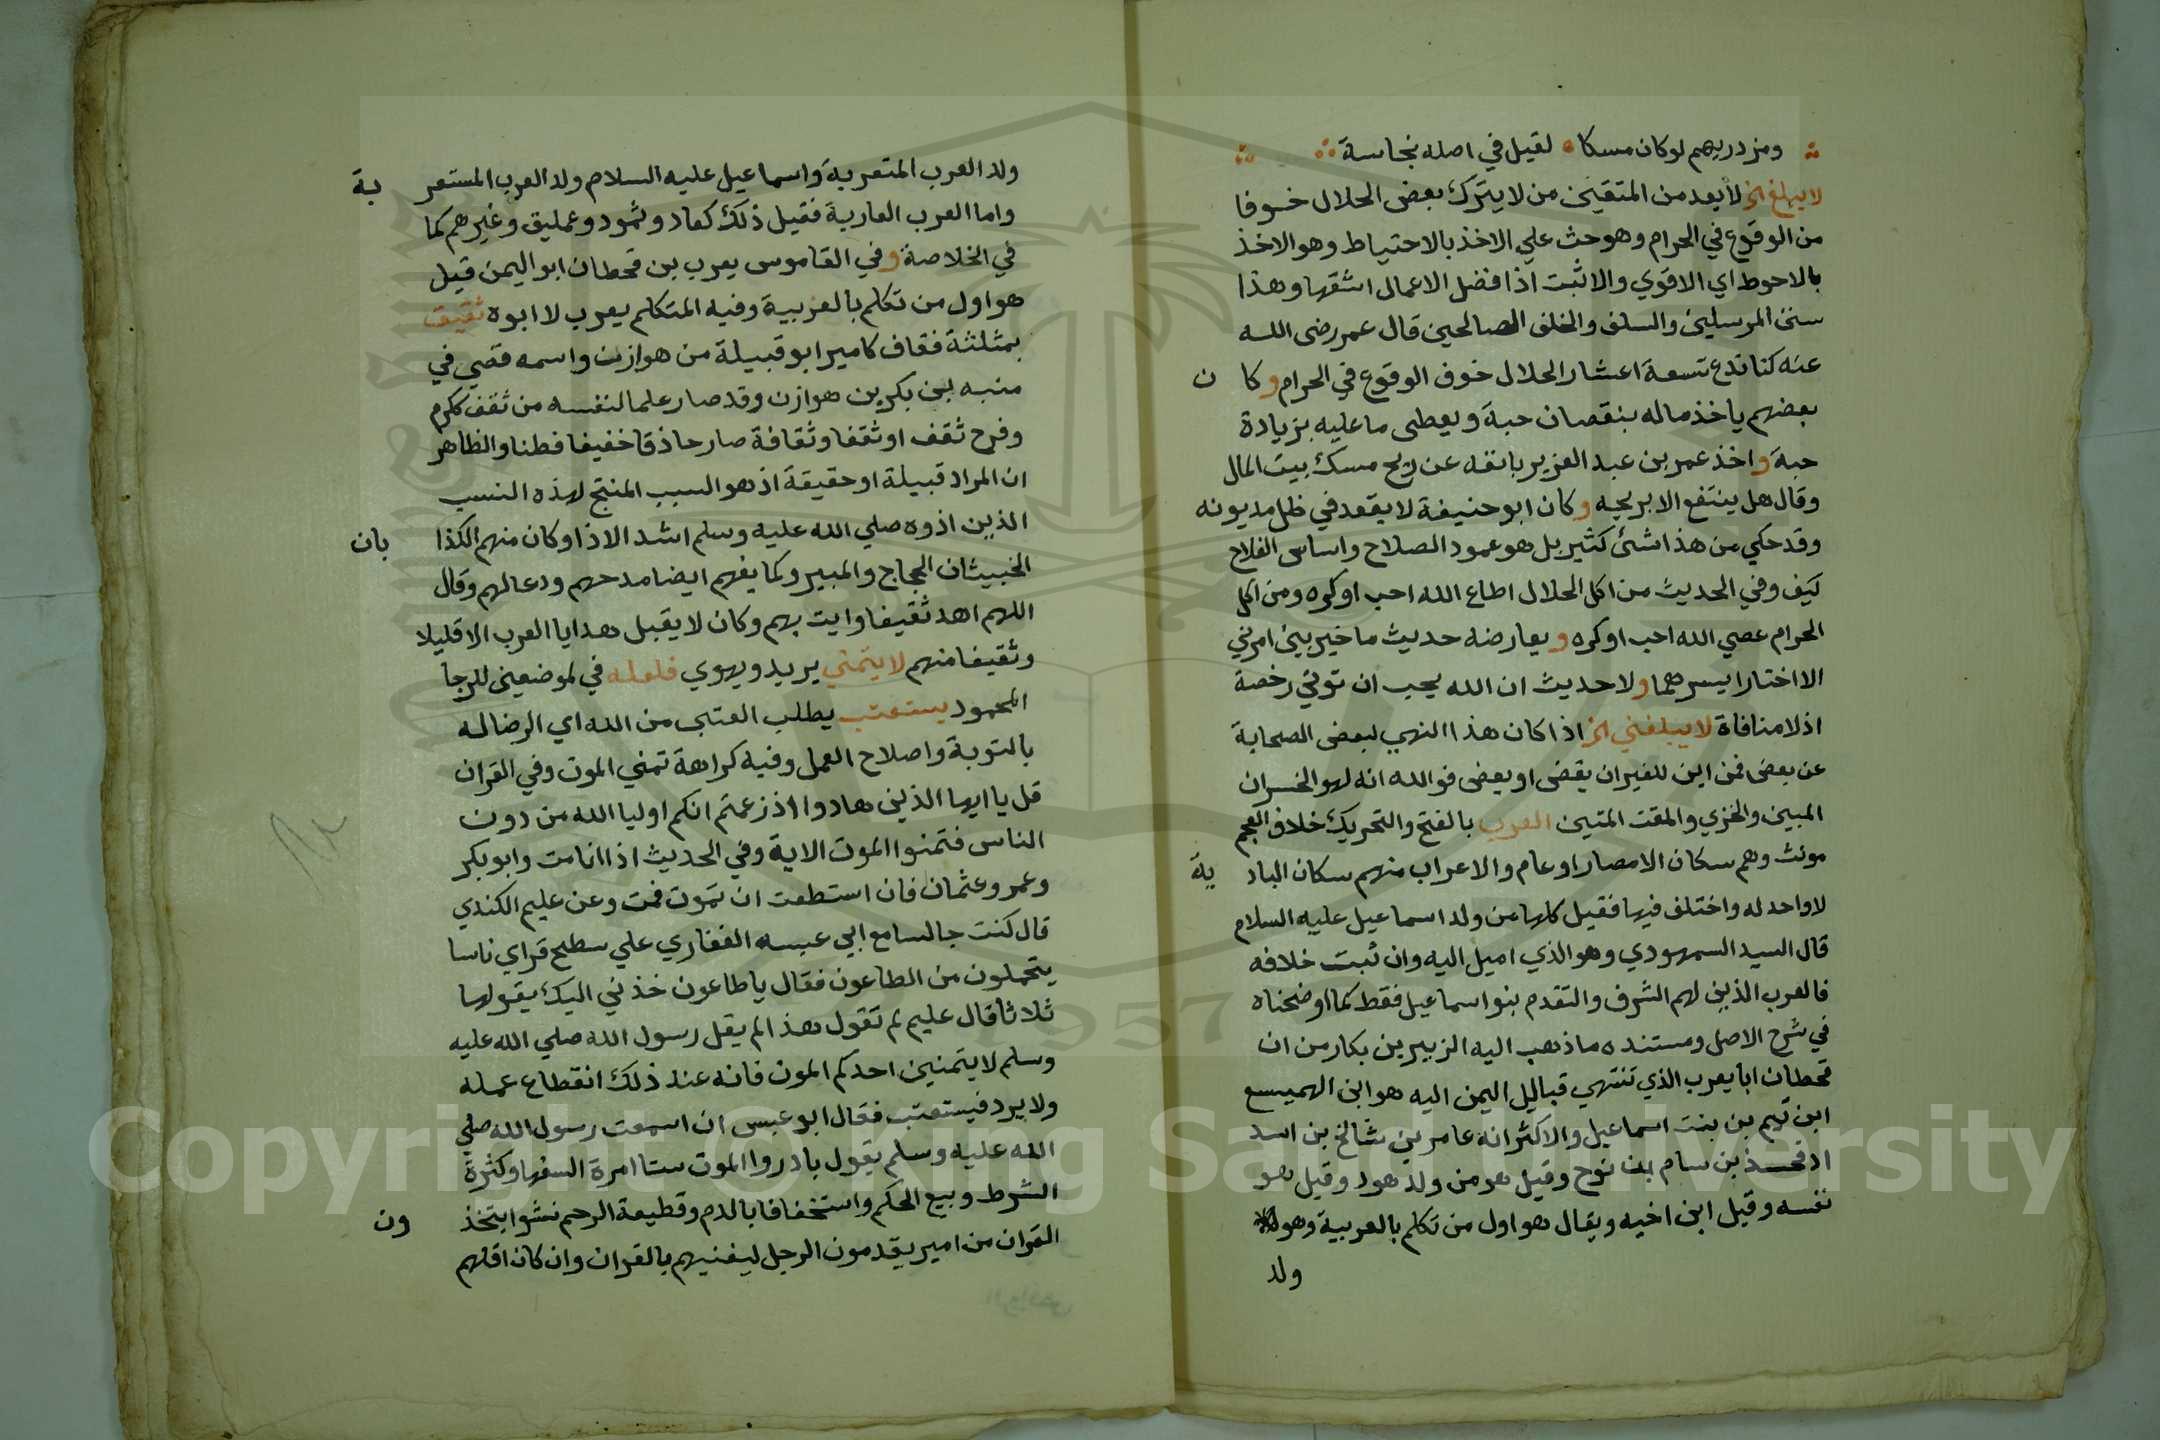 ومزدريهم لوكان مسكا لقيل في اصله بنجاسة
لايبلغ الخ لايعد من المتقين من لايترك بعض الحلال خوفا
من الوقوع في الحرام وهو حث علي الاخذ بالاحتياط وهو الاخذ
بالاحوط اي الاقوي والاثبت اذ افضل الاعمال اشقها وهذا
سنن المرسلين والسلف والخلف الصالحين قال عمر رضى الله
عنه كنا ندع تسعة اعشار الحلال خوف الوقوع في الحرام وكان
بعضهم ياخذ ماله بنقصان حبة ويعطى ماعليه بزيادة
حبة واخذ عمر بن عبد العزيز بانفه عن ريح مسك بيت المال
وقال هل ينتفع الابريحه وكان ابوحنيفة لايقعد في ظل مديونه
وقد حكي من هذا شئ كثير بل هو عمود الصلاح واساس الفلاح
كيف وفي الحديث من اكل الحلال اطاع الله احب اوكره ومن اكل
الحرام عصي الله احب اوكره ويعارضه حديث ماخير بين امرين
الا اختار ايسرهما ولاحديث ان الله يحب ان توتي رخصة
اذ لامنافاة لايبلغني الخ اذا كان هذا النهي لبعض الصحابة
عن بعض فمن اين للغير ان يقض او بعض فوالله انه لهو الخسران
المبين والخزي والمقت المتين العرب بالفتح والتحريك خلاف العجم
مونث وهم سكان الامصار اوعام والاعراب منهم سكان البادية
لاواحد له واختلف فيها فقيل كلها من ولد اسماعيل عليه السلام
قال السيد السمهودي وهو الذي اميل اليه وان ثبت خلافه
فالعرب الذين لهم الشرف والتقدم بنو اسماعيل فقط كما اوضحناه
في شرح الاصل ومستنده ماذهب اليه الزبير بن بكار من ان
قحطان ابا يعرب الذي تنتهي قبايل اليمن اليه هو ابن الهميسع
ابن تيم بن بنت اسماعيل والاكثر انه عامر بن شالخ بن اسد
ارفحسد بن سام ابن نوح وقيل هو من ولد هود وقيل هو
نفسه وقيل ابن اخيه ويقال هو اول من تكلم بالعربية وهو
ولد
ولد العرب المتعربة واسماعيل عليه السلام ولد العرب المستعربة
واما العرب العاربة فقيل ذلك كعاد وثمود وعمليق وغيرهم كما
في الخلاصة وفي القاموس يعرب بن قحطان ابو اليمن قيل
هو اول من تكلم بالعربية وفيه المتكلم يعرب لا ابوه ثقيف
بمثلثة فقاف كامير ابو قبيلة من هوازن واسمه قصي في
منبه بن بكر بن هوازن وقد صار علما لنفسه من ثقف ككرم
وفرح ثقف او ثقفا وثقافة صار حاذقا خفيفا فطنا والظاهر
ان المراد قبيلة او حقيقة اذ هو السبب المنتج لهذه النسب
الذين اذوه صلي الله عليه وسلم اشد الاذا وكان منهم الكذابان
الخبيثان الحجاج والمبير وكما يفهم ايضا مدحهم ودعا لهم وقال
اللهم اهد ثقيفا وايت بهم وكان لايقبل هدايا العرب الا قليلا
وثقيفا منهم لايتمني يريد ويهوي فلعله في لموضعين للرجا
المحمود يستعتب يطلب العتبى من الله اي الرضا له
بالتوبة واصلاح العمل وفيه كراهة تمني الموت وفي القران
قل يا ايها الذين هادوا اذ زعمتم انكم اوليا الله من دون
الناس فتمنوا الموت الاية وفي الحديث اذا انا مت وابوبكر
وعمر وعثمان فان استطعت ان تموت فمت وعن عليم الكندي
قال كنت جالسا مع ابي عبسه الغفاري علي سطح فراي ناسا
يتحملون من الطاعون فقال ياطاعون خذني اليك يقولها
ثلاثا قال عليم لم تقول هذا الم يقل رسول الله صلي الله عليه
وسلم لايتمنين احدكم الموت فانه عند ذلك انقطاع عمله
ولايرد فيستعتب فقال ابو عبس ان اسمعت رسول الله صلي
الله عليه وسلم يقول بادروا الموت ستا امرة السفها وكثرة
الشرط وبيع الحكم واستخفافا بالدم وقطيعة الرحم نشوا يتخذون
القران من امير يقدمون الرجل ليغنيهم بالقران وان كان اقلهم
1957
Copyright © King Saud University